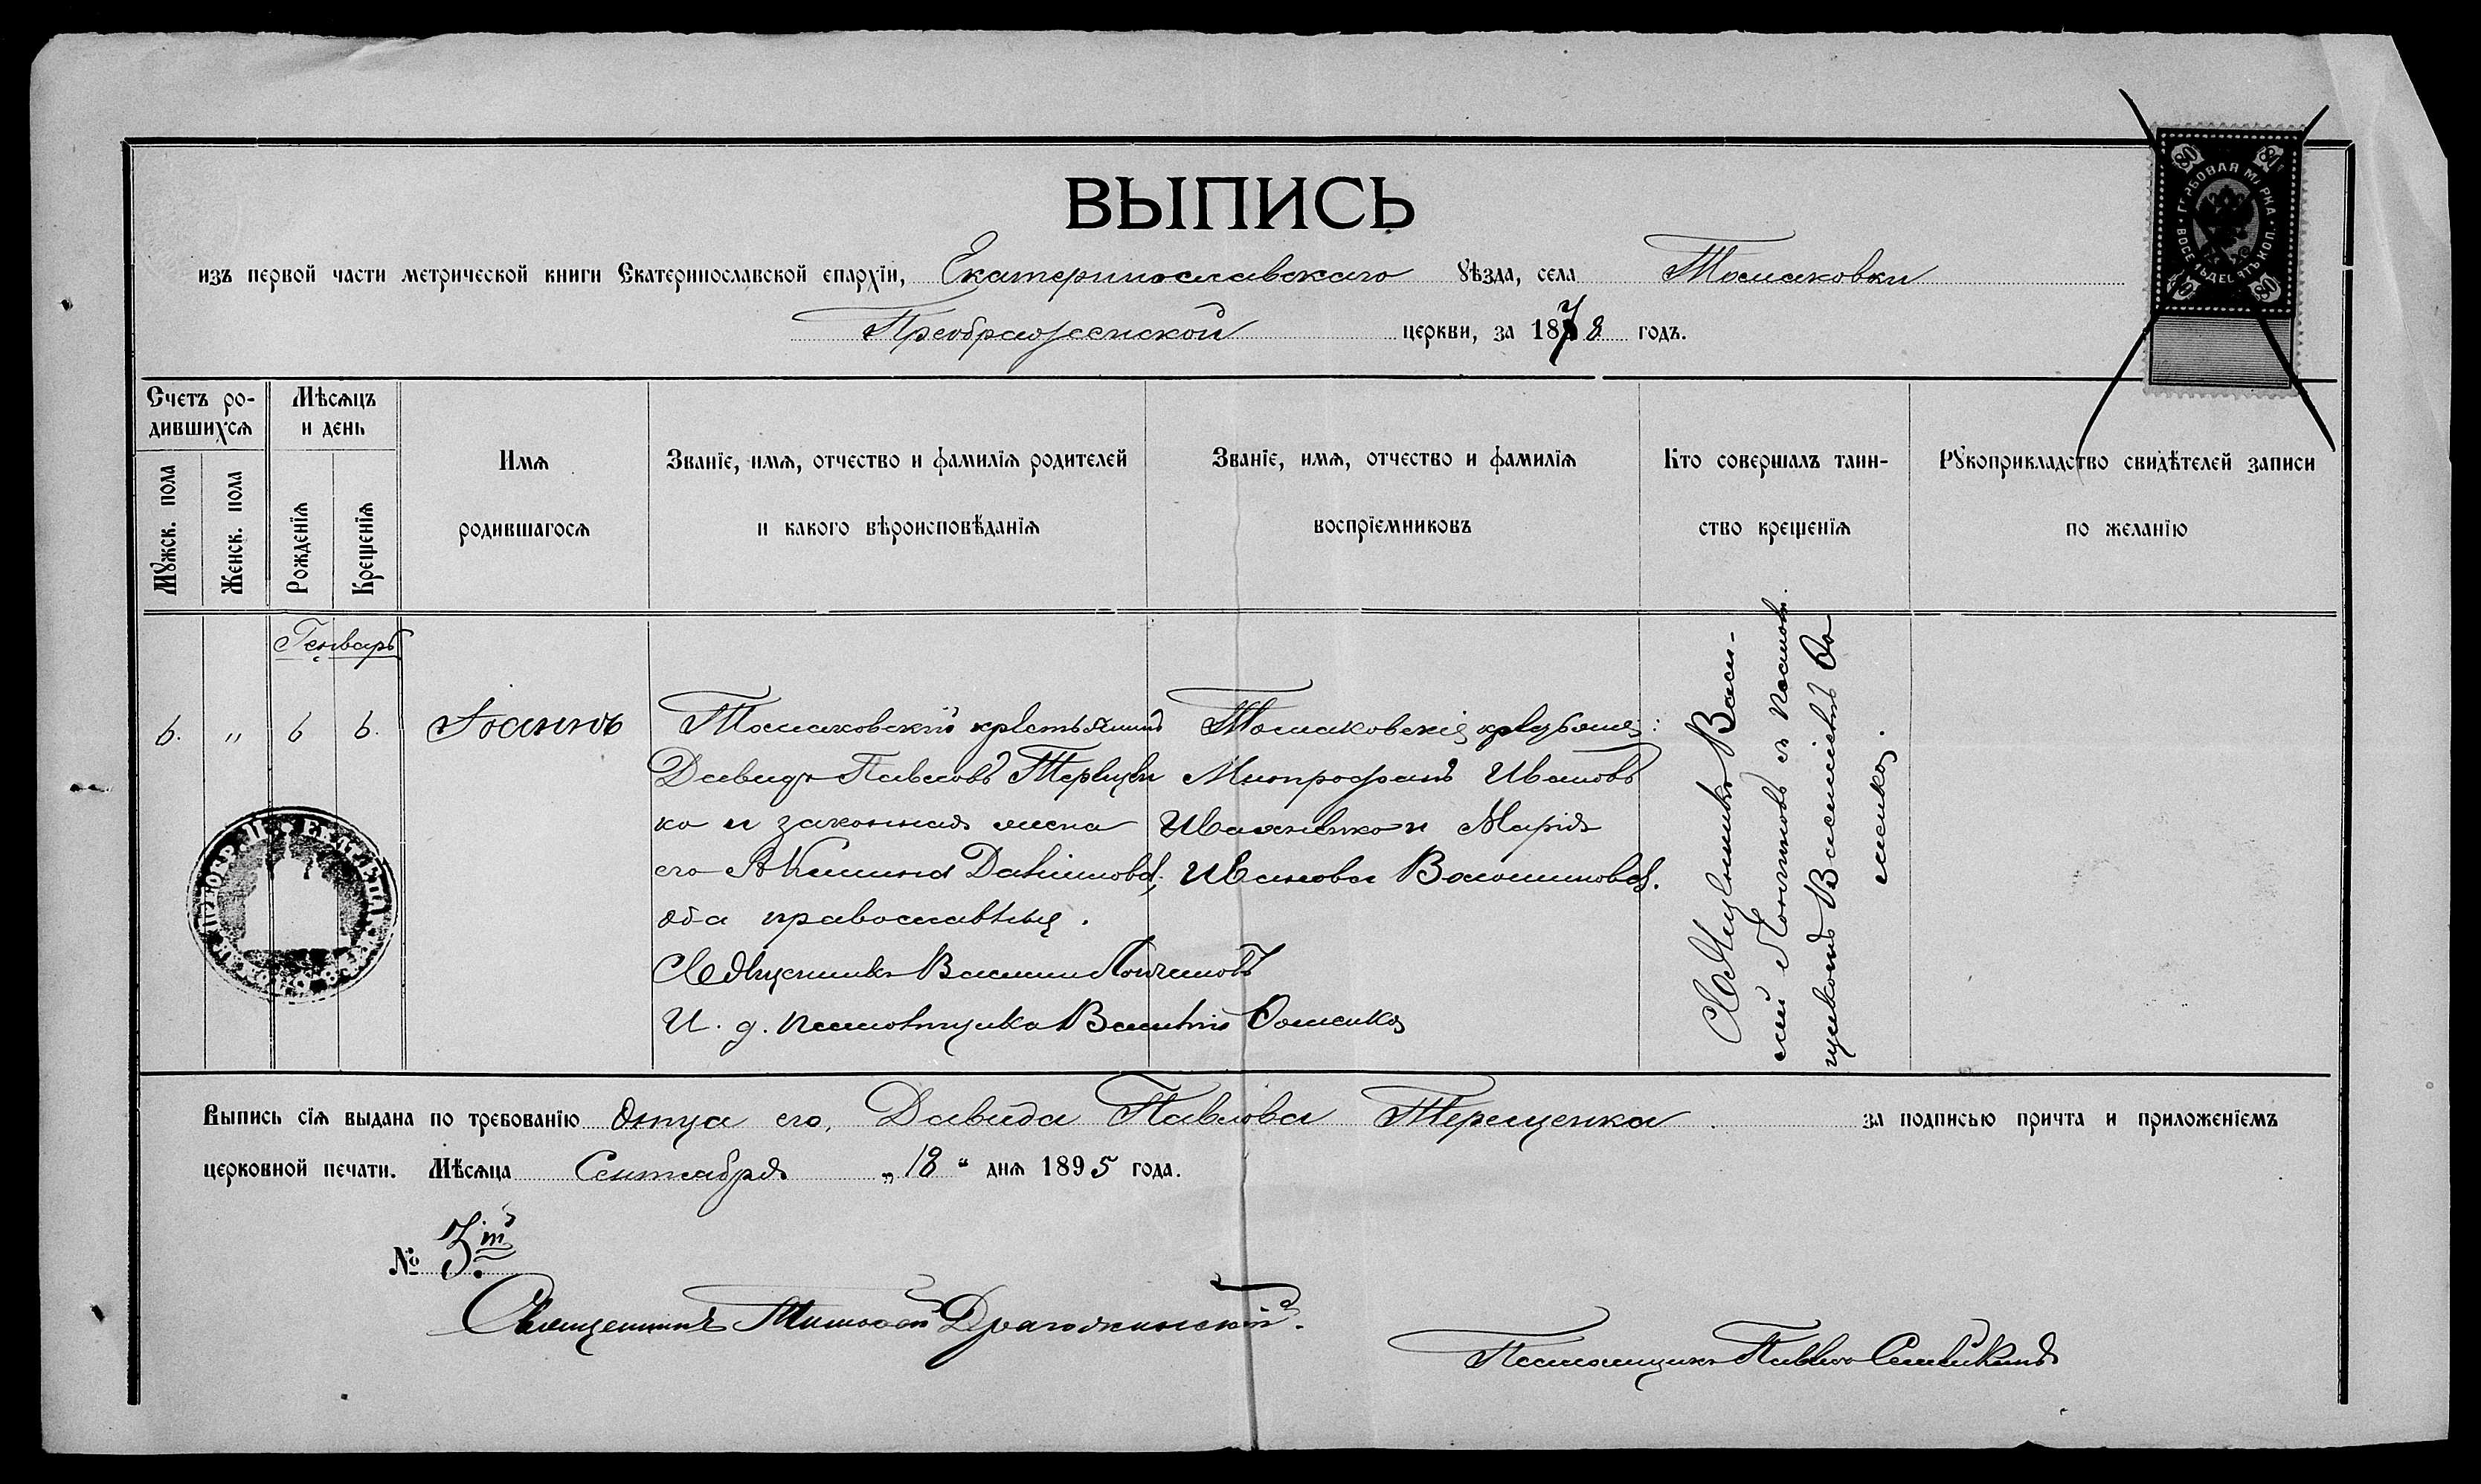 ВЫПИСЬ
изъ первой части метрической книги Екатеринославской епархіи, Екатеринославскаго уѣзда, села Томаковки
Преображенской церкви, за 1878 годъ.
ГЕРБОВАЯ МАРКА
ВОСЕМЬДЕСЯТЪ КОП.
80 80
80 80
Счетъ ро-
дившихся
Мужск. пола
Женск. пола
Мѣсяцъ
и день
Рожденія
Крещенія
Имя
родившагося
Званіе, имя, отчество и фамилія родителей
и какого вѣроисповѣданія
Званіе, имя, отчество и фамилія
воспріемниковъ
Кто совершалъ таин-
ство крещенія
Рукоприкладство свидѣтелей записи
по желанію
Генварь
6. " 6 6. Іоаннъ
Томаковскій крестьянинъ
Давидъ Павловъ Терещен
ко и законная жена
его Акилина Даниилова,
оба православные.
Священникъ Василий Лонгиновъ
И. д. псаломщика Василій
Томаковскіе :
Митрофанъ Ивановъ
Иваненко и Марія
Иванова Волошинова.
Священникъ Васи-
лий Лонгиновъ съ псалом-
щикомъ
Выпись сія выдана по требованію отца его, Давида Павлова Терещенка за подписью причта и приложеніемъ
церковной печати. Мѣсяца Сентября „18“ дня 1895 года.
№ 3.
Священникъ Тимофей
Псаломщикъ Павелъ